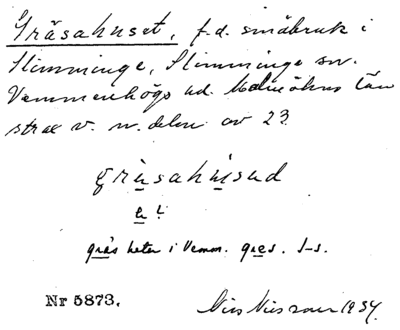 Gräsahuset, f.d. småbruk i
Slimminge, Slimminge sn.
Vemmenhögs hd. Malmöhus län
strax v. n. delen av 23.
gräsahused
gräs heter i Vemm. gres. I-s.
Nr 5873.
Nils Nilsson 1934